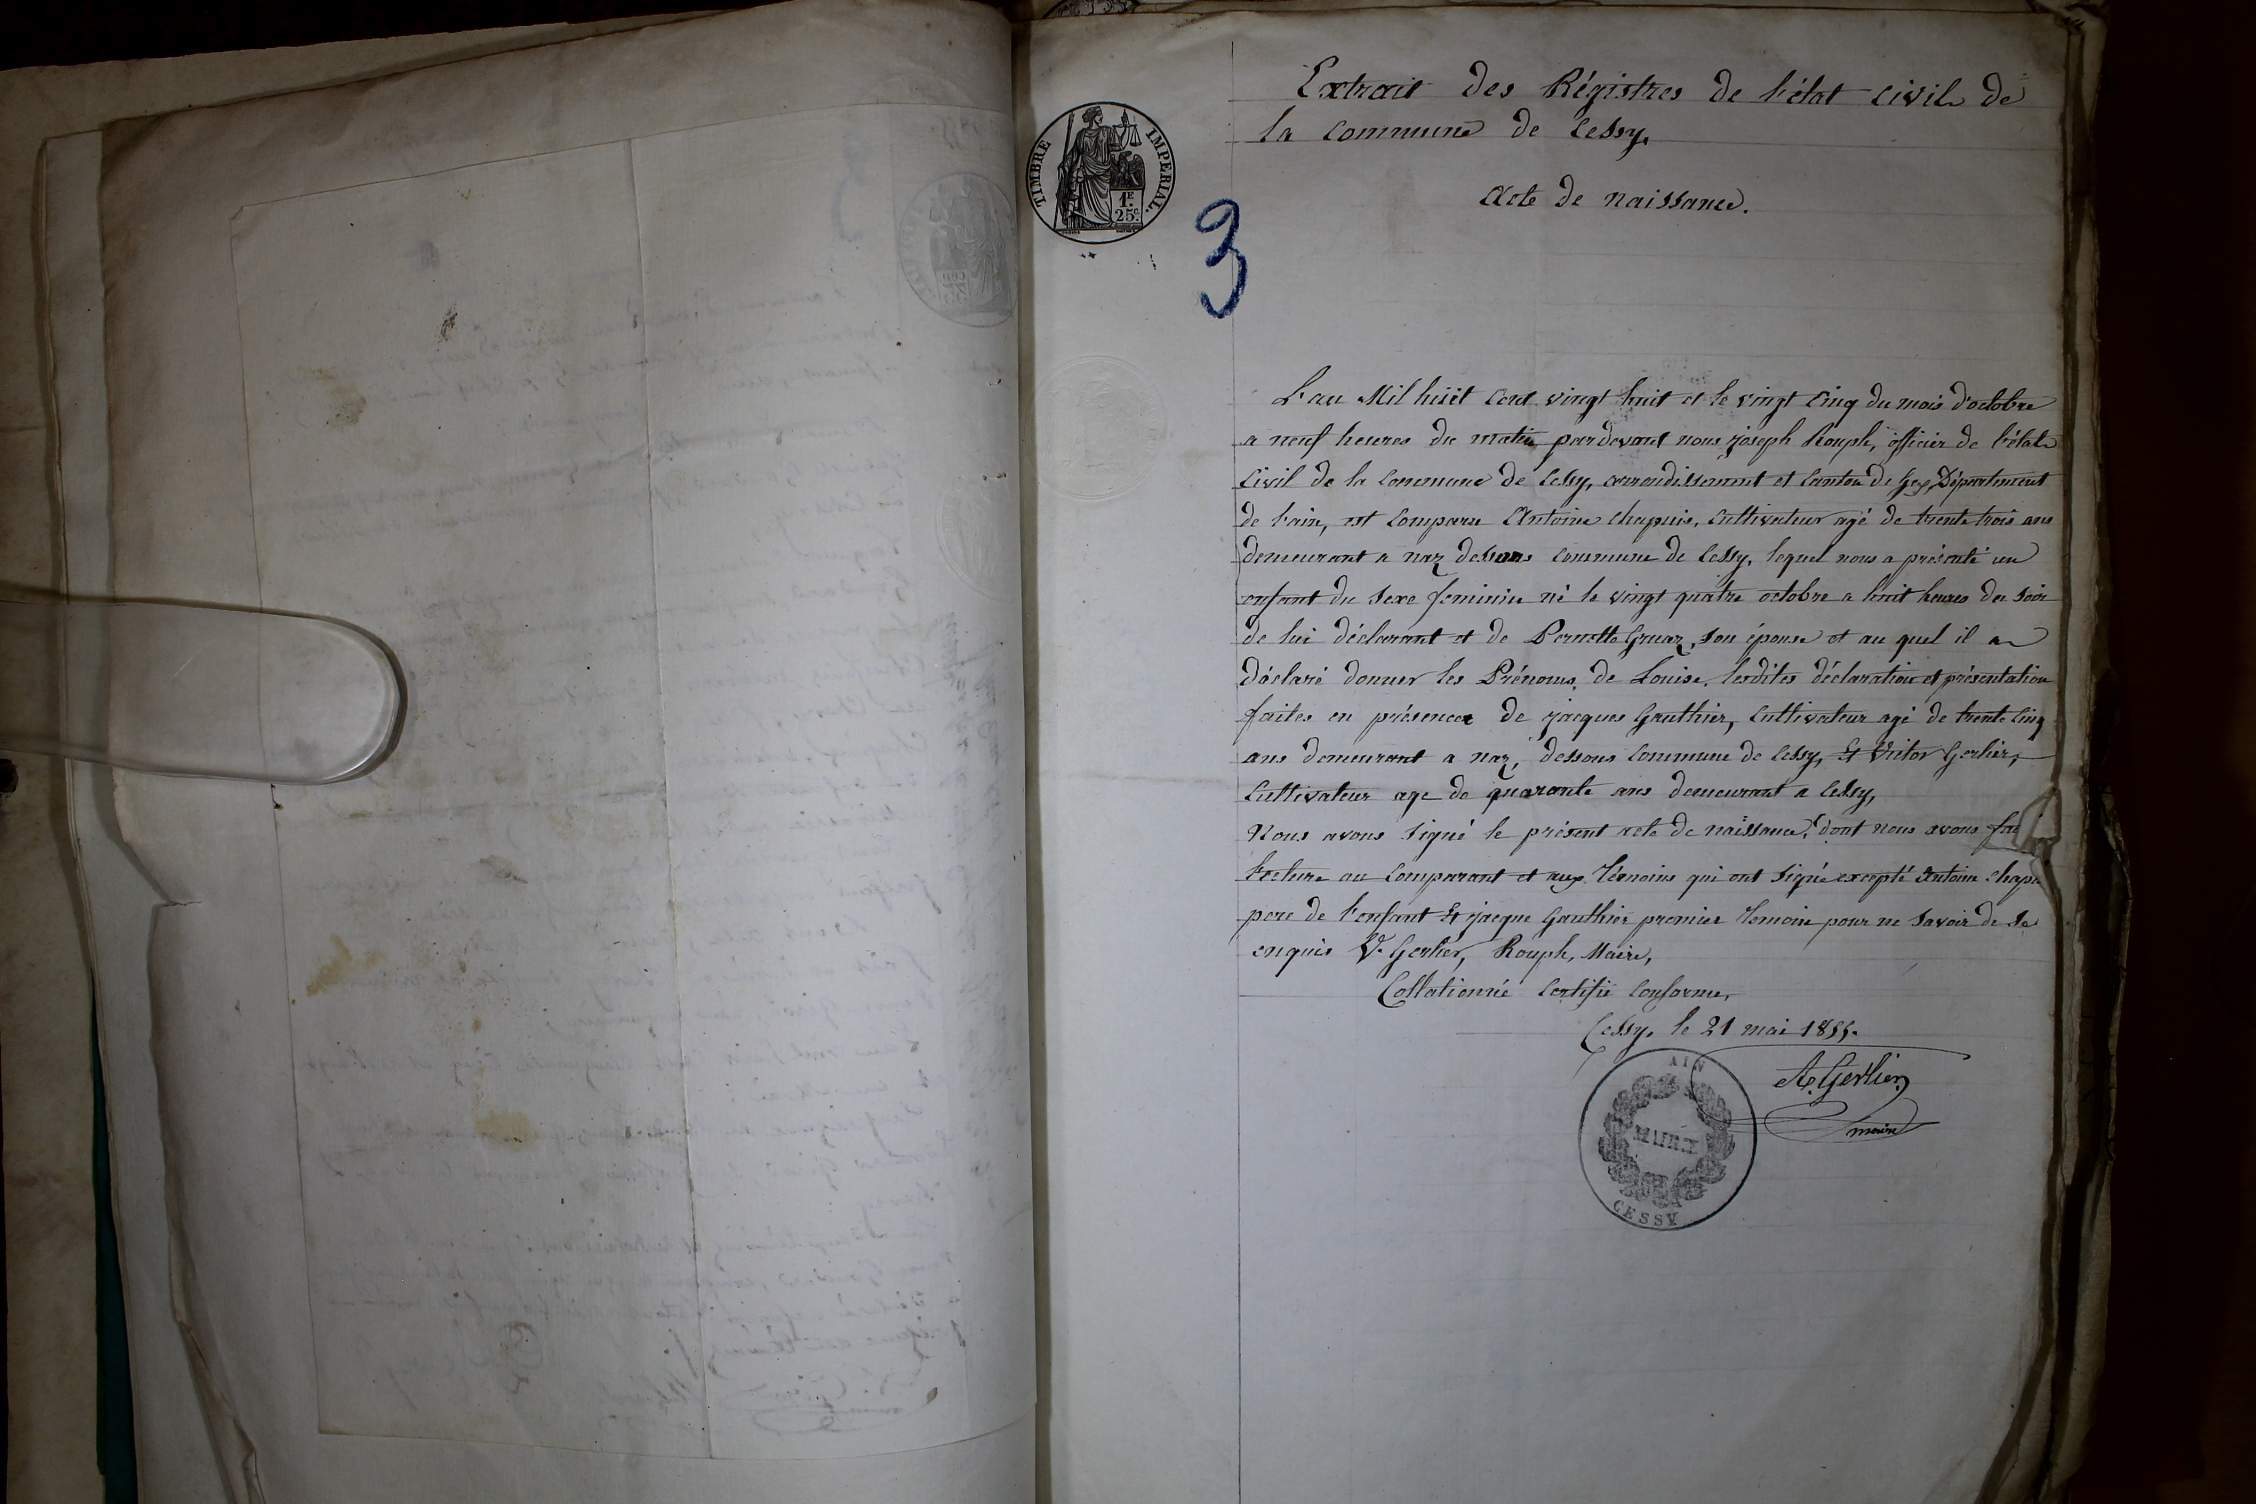 Extrait des Régistres de l'état civil de
la commune de Cessy.
Acte de naissance.
TIMBRE IMPERIAL.
1F.
25c.
3
L'an Mil huit cent vingt huit et le vingt cinq du mois d'octobre
a neuf heures du matin pardevant nous joseph Rouph, officier de l'état
Civil de la Commune de Cessy, arrondissement et Canton de Gex, Département
de l'ain, est Comparu Antoine Chapuis, Cultivateur agé de trente trois ans
demeurant a naz dessous commune de Cessy, lequel nous a présenté un
enfant du sexe feminin né le vingt quatre octobre a huit heures du soir
de lui déclarant et de Pernette Gruaz, son épouse et au quel il a
déclaré donner les Prénoms, de Louise, lesdites déclaration et présentation
faites en présence de jacques Gauthier, Cultivateur agé de trente cinq
ans demeurant a naz, dessous Commune de Cessy, Et Victor Gerlier,
Cultivateur age de quarante ans demeurant a Cessy,
Nous avons signé le présent acte de naissance, dont nous avons
lecture au Comparant et aux témoins qui ont signé excepté Antoine
pere de l'enfant Et jacque Gauthier premier temoin pour ne savoir de ce
enquis V. Gerlier, Rouph, Maire,
Collationné Certifié Conforme,
Cessy, le 21 mai 1855.
A. Gerlier
maire
AIN
MAIRIE
CESSY